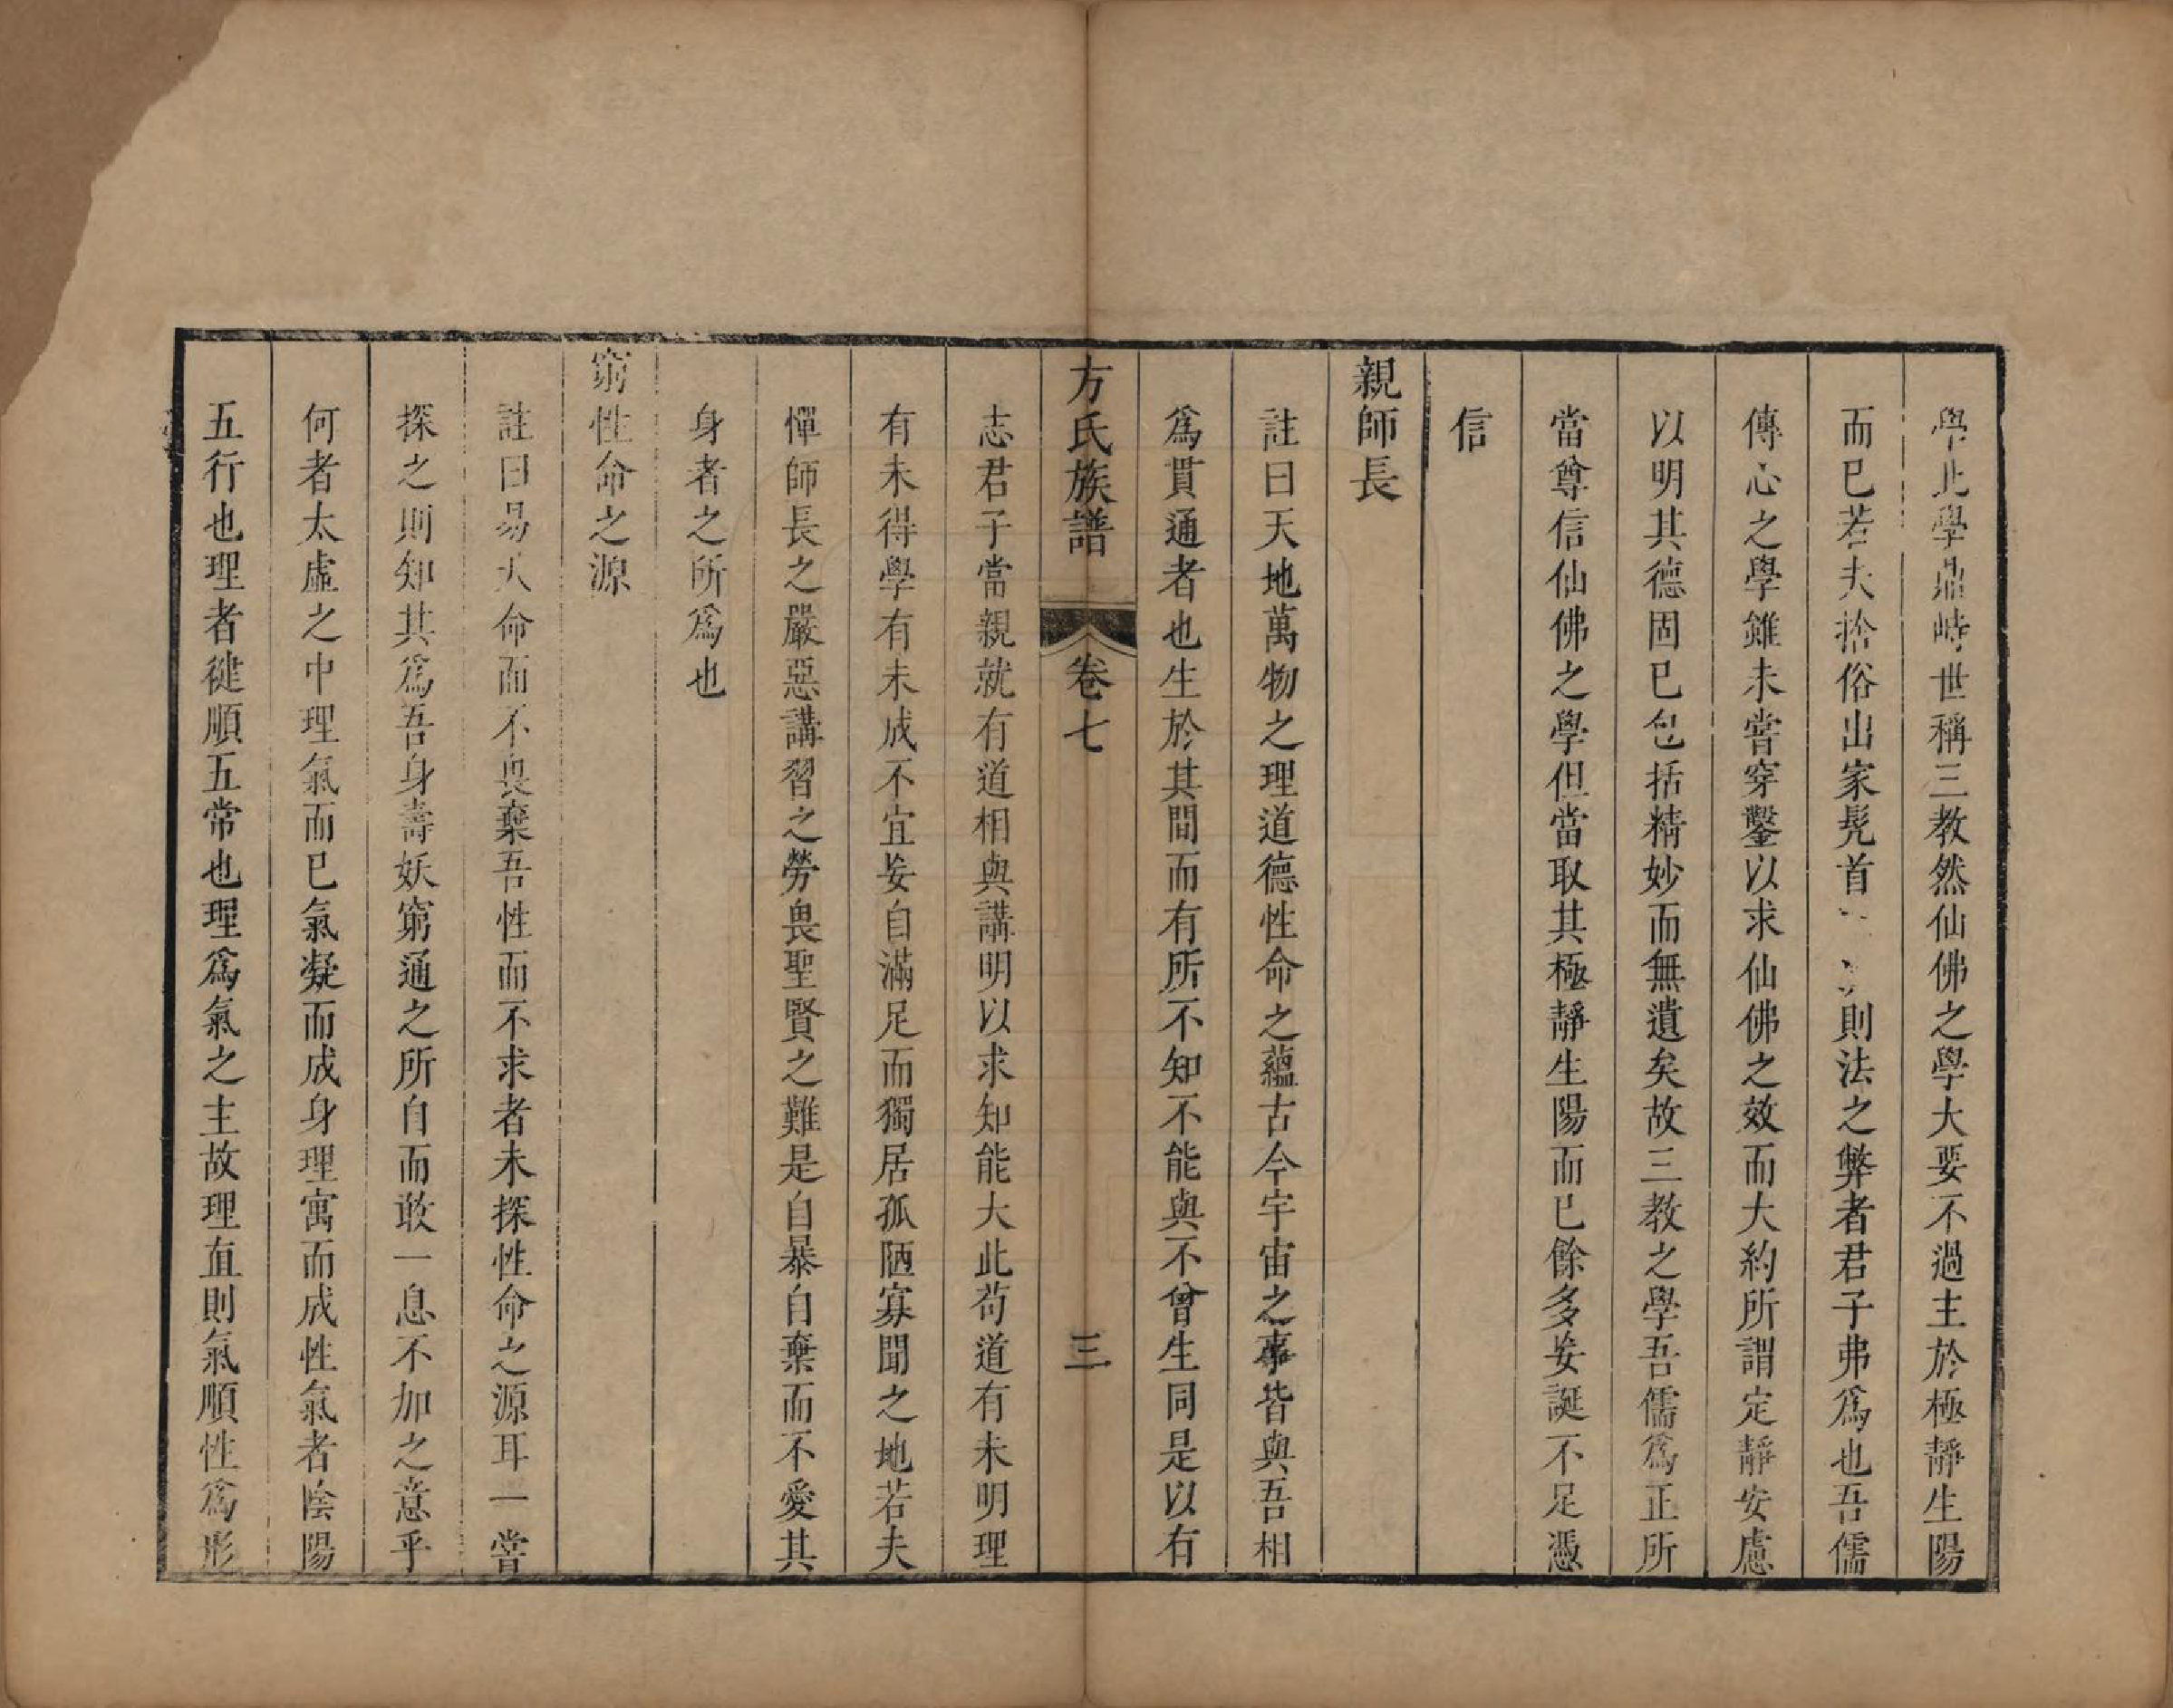 學此學鼎峙世稱三教然仙佛之學大要不過主於極靜生陽
而已若夫捨俗出家髡首則法之弊者君子弗爲也吾儒
傳心之學雖未嘗穿鑿以求仙佛之效而大約所謂定靜安慮
以明其德固已包括精妙而無遺矣故三教之學吾儒爲正所
當尊信仙佛之學但當取其極靜生陽而已餘多妄誕不足憑
信
親師長
註曰天地萬物之理道德性命之蘊古今宇宙之事皆與吾相
爲貫通者也生於其間而有所不知不能與不曾生同是以有
方氏族譜 卷七 三
志君子當親就有道相與講明以求知能大此苟道有未明理
有未得學有未成不宜妄自滿足而獨居孤陋寡聞之地若夫
憚師長之嚴惡講習之勞畏聖賢之難是自暴自棄而不愛其
身者之所爲也
窮性命之源
註曰易大命而不畏棄吾性而不求者未探性命之源耳一嘗
探之則知其爲吾身壽妖窮通之所自而敢一息不加之意乎
何者太虛之中理氣而已氣凝而成身理寓而成性氣者陰陽
五行也理者健順五常也理爲氣之主故理直則氣順性爲形